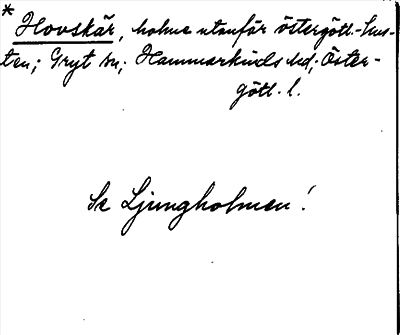 * Hovskär, holme utanför östergötl.-kus-
ten; Gryt sn; Hammarkinds hd; Öster-
götl. l.
Se Ljungholmen!